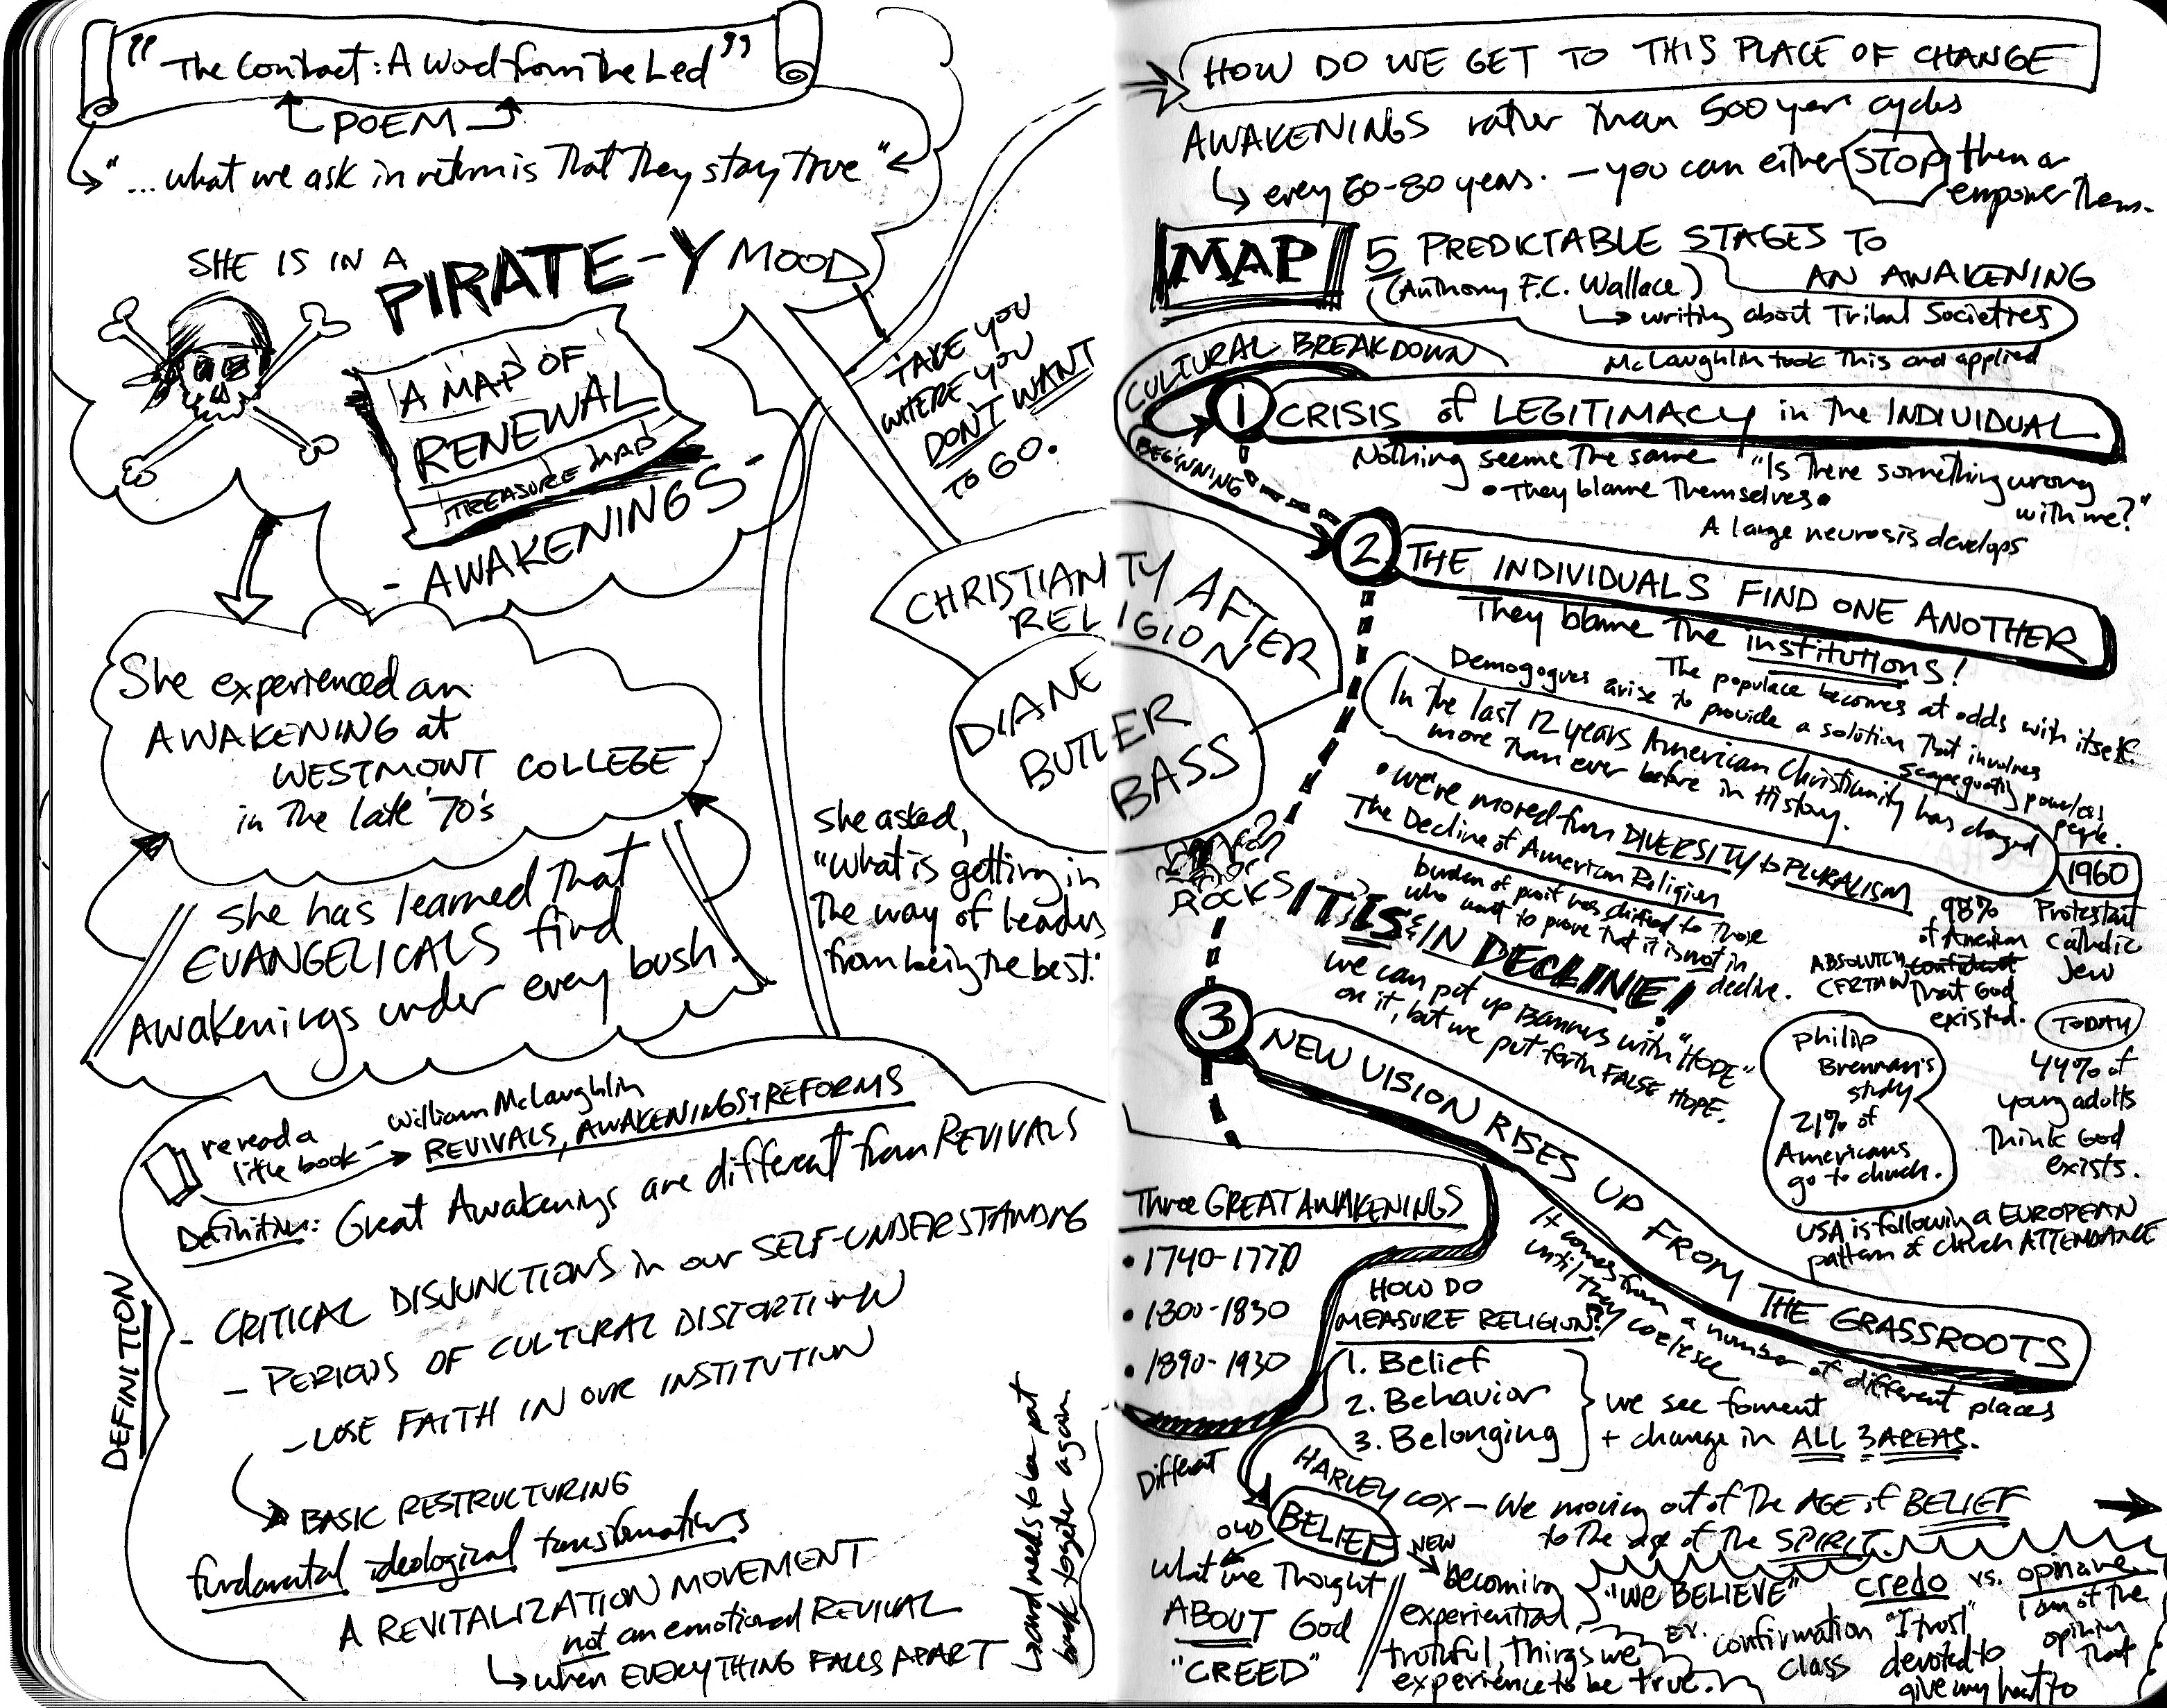 "The Contract: A Word from the Led"
POEM
"... what we ask in return is that they stay true"
SHE IS IN A
PIRATE-Y MOOD
A MAP OF
RENEWAL
TREASURE MAP
- AWAKENINGS -
TAKE YOU
WHERE YOU
DON'T WANT
TO GO.
She experienced an
AWAKENING at
WESTMONT COLLEGE
in the late '70's
She has learned that
EVANGELICALS find
Awakenings under every bush.
CHRISTIANITY AFTER
RELIGION
DIANE
BUTLER
BASS
She asked,
"What is getting in
the way of leaders
from being the best."
reread a
little book -
William McLaughlin
REVIVALS, AWAKENINGS + REFORMS
Definition: Great Awakenings are different from REVIVALS
DEFINITION
- CRITICAL DISJUNCTIONS in our SELF-UNDERSTANDING
- PERIODS OF CULTURAL DISTORTION
- LOSE FAITH IN OUR INSTITUTION
BASIC RESTRUCTURING
fundamental ideological transformations
A REVITALIZATION MOVEMENT
not an emotional REVIVAL
when EVERYTHING FALLS APART
and needs to be put
back together again
HOW DO WE GET TO THIS PLACE OF CHANGE
AWAKENINGS rather than 500 year cycles
every 60-80 years. - you can either STOP them or
empower them.
MAP
5 PREDICTABLE STAGES TO
AN AWAKENING
(Anthony F.C. Wallace)
writing about Tribal Societies
McLaughlin took this and applied
CULTURAL BREAKDOWN
BEGINNING
1 CRISIS of LEGITIMACY in the INDIVIDUAL
Nothing seems the same "Is there something wrong
with me?"
• They blame themselves •
A large neurosis develops
2 THE INDIVIDUALS FIND ONE ANOTHER
They blame the institutions!
The populace becomes at odds with itself.
Demogogues arise to provide a solution that involves
scapegoating powerless
people.
In the last 12 years American Christianity has changed
more than ever before in History.
• we're moved from DIVERSITY to PLURALISM
The Decline of American Religion
burden of proof was shifted to those
who want to prove that it is not in
decline.
ROCKS
IT IS IN DECLINE!
we can put up Banners with "HOPE"
on it, but we put forth FALSE HOPE.
1960
98%
of American
ABSOLUTELY
CERTAIN
that God
existed.
Protestant
Catholic
Jew
TODAY
44% of
young adults
think God
exists.
Philip
Brennan's
study
21% of
Americans
go to church.
USA is following a EUROPEAN
pattern of church ATTENDANCE
3 NEW VISION RISES UP FROM THE GRASSROOTS
It comes from a number of different places
until they coalesce
Three GREAT AWAKENINGS
• 1740-1770
• 1800-1830
• 1890-1930
HOW DO
MEASURE RELIGION?
1. Belief
2. Behavior
3. Belonging
we see foment
+ change in ALL 3 AREAS.
Different
HARVEY COX - We moving out of the AGE of BELIEF
to the age of the SPIRIT.
BELIEF
OLD
what we thought
ABOUT God
"CREED"
NEW
becoming
experiential,
truthful, things we
experience to be true.
"WE BELIEVE"
Ex. confirmation
class
credo vs. opinare
"I trust"
devoted to
give my heart to
I am of the
opinion
that